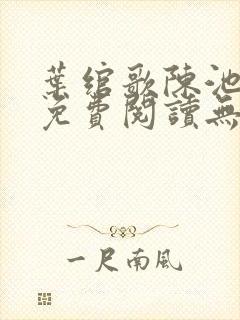 葉綰歌陳池
免費閱讀無
一尺南風